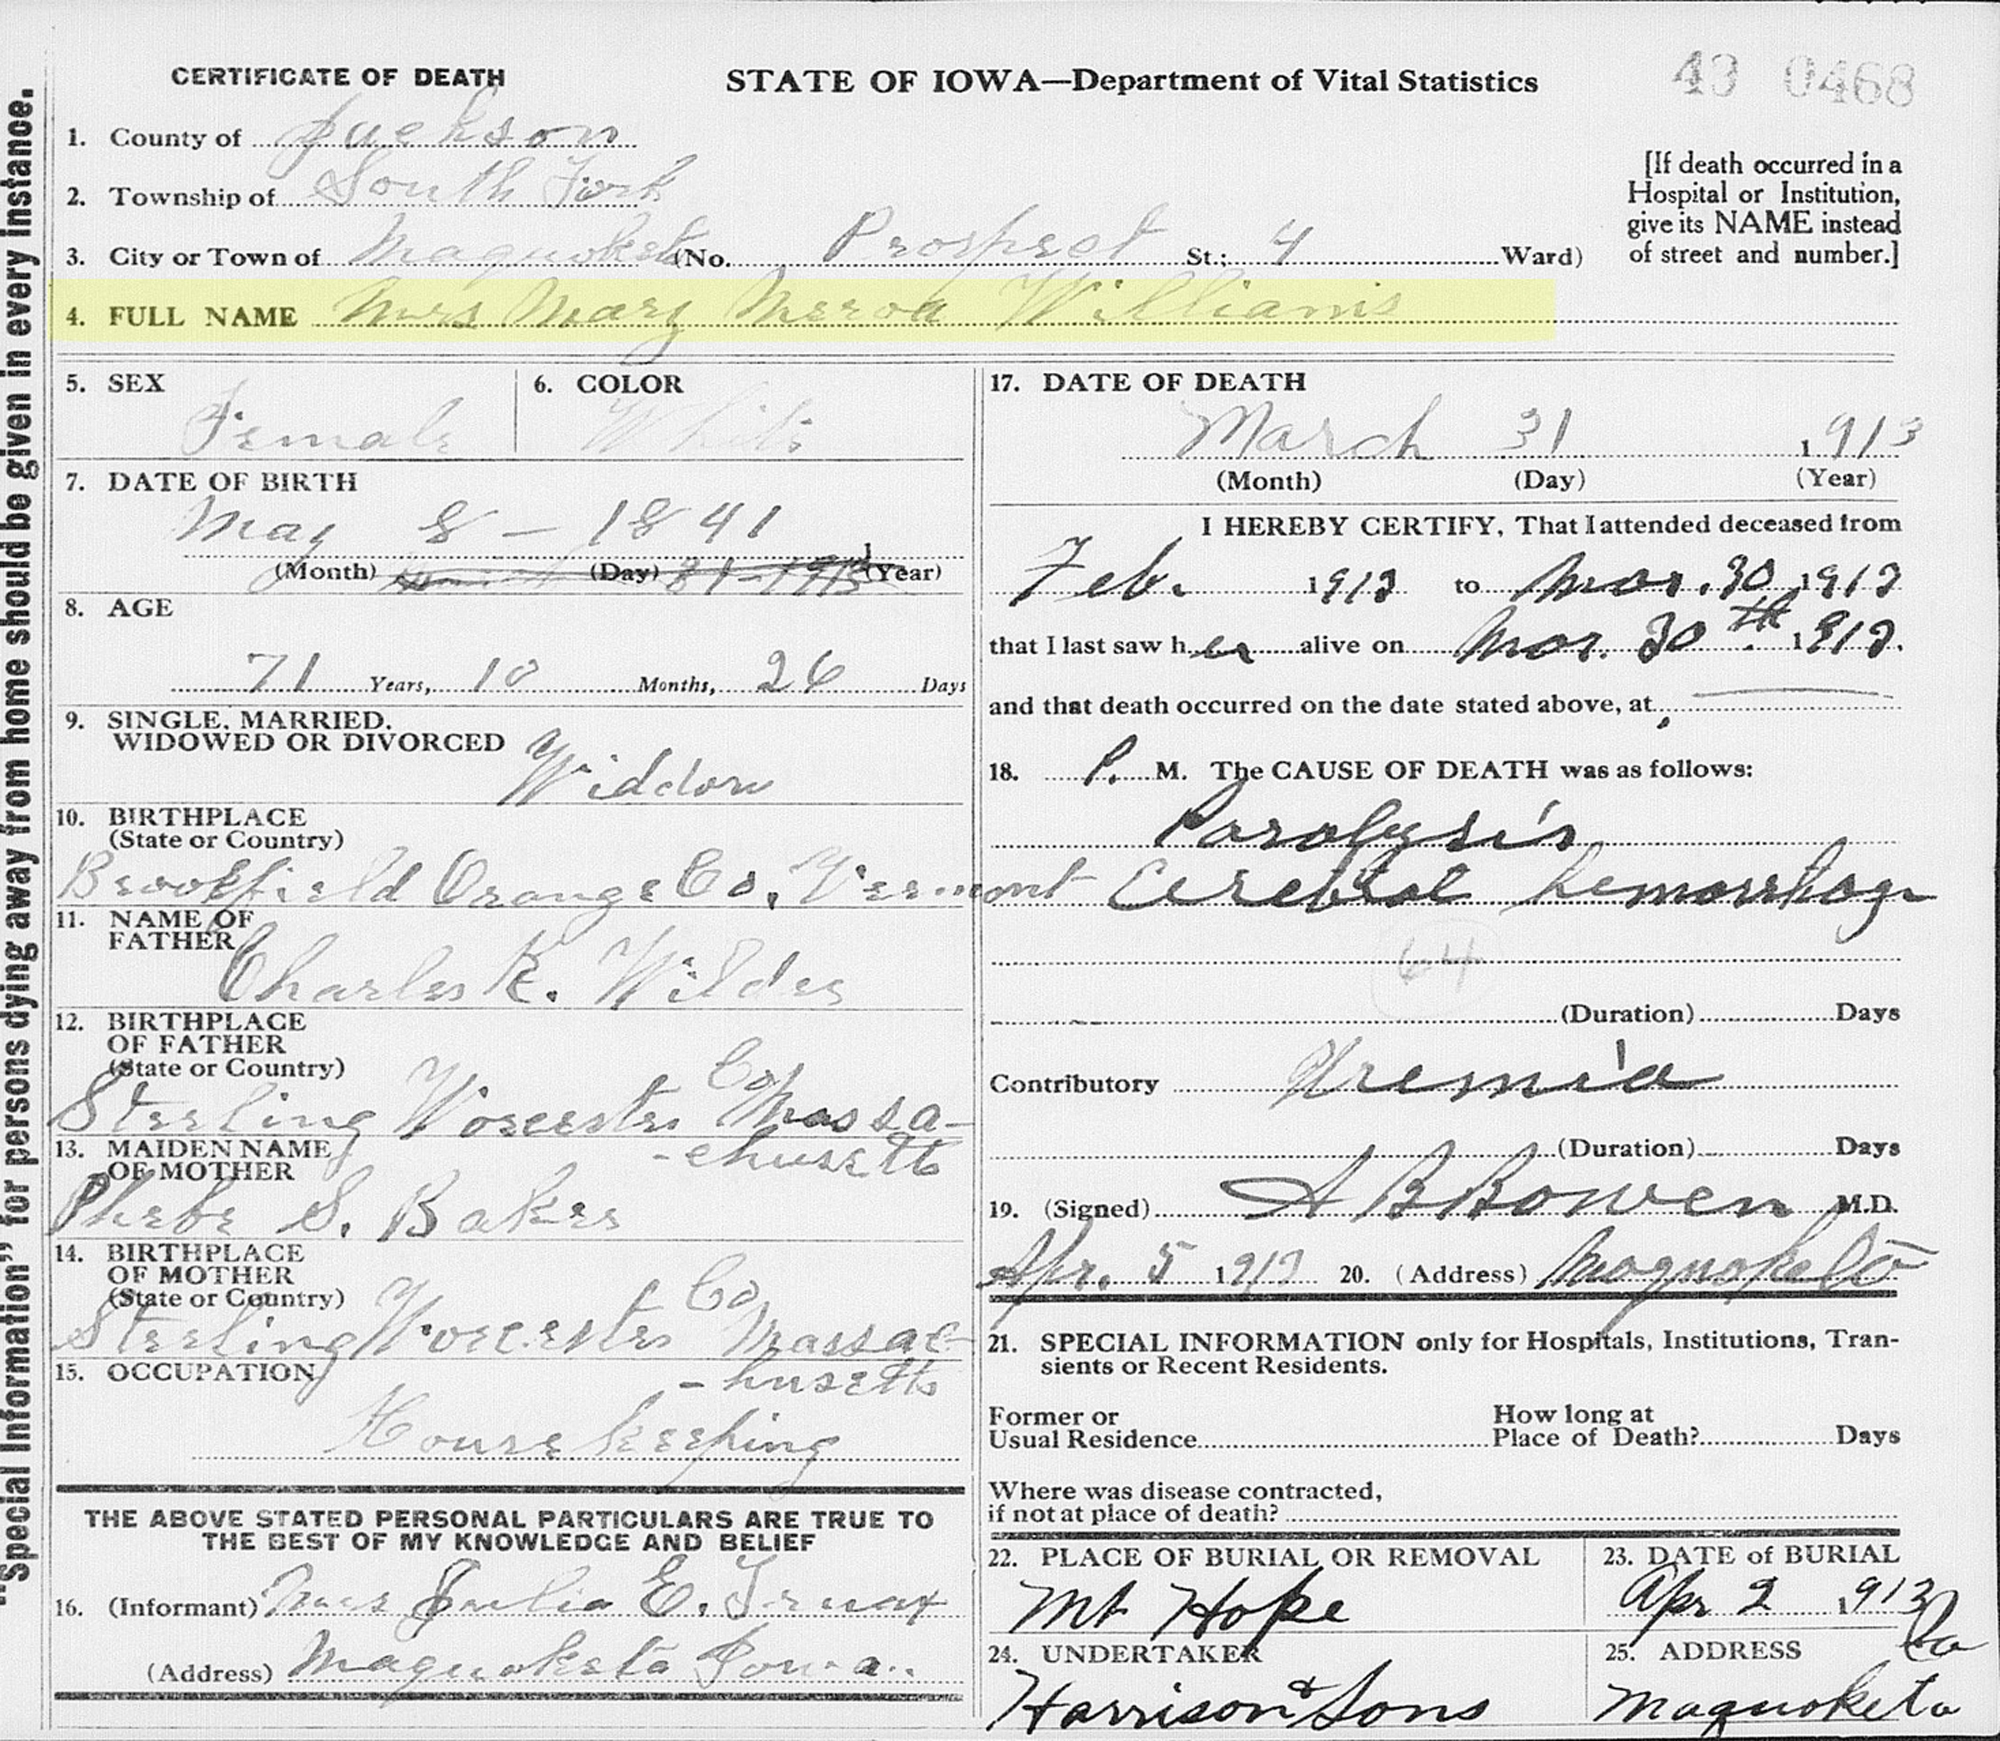 CERTIFICATE OF DEATH
STATE OF IOWA—Department of Vital Statistics
43 0468
1. County of Jackson
2. Township of South Fork
3. City or Town of Maquoketa (No. Prospect St.; 4 Ward)
[If death occurred in a
Hospital or Institution,
give its NAME instead
of street and number.]
4. FULL NAME Mrs Mary Meroa Williams
5. SEX
Female
6. COLOR
White
7. DATE OF BIRTH
May 8 - 1841
(Month) (Day) 31-1913 (Year)
8. AGE
71 Years, 10 Months, 26 Days
9. SINGLE, MARRIED,
WIDOWED OR DIVORCED
Widdow
10. BIRTHPLACE
(State or Country)
Brookfield Orange Co. Vermont
11. NAME OF
FATHER
Charles K. Wilder
12. BIRTHPLACE
OF FATHER
(State or Country)
Sterling Worcester Co Massa-
-chusetts
13. MAIDEN NAME
OF MOTHER
Phebe S. Baker
14. BIRTHPLACE
OF MOTHER
(State or Country)
Sterling Worcester Co Massac-
-husetts
15. OCCUPATION
House keeping
THE ABOVE STATED PERSONAL PARTICULARS ARE TRUE TO
THE BEST OF MY KNOWLEDGE AND BELIEF
16. (Informant) Mrs Julia E. Truax
(Address) Maquoketa Iowa.
17. DATE OF DEATH
March 31 1913
(Month) (Day) (Year)
I HEREBY CERTIFY, That I attended deceased from
Feb. 1913 to Mar. 30 1913
that I last saw her alive on Mar. 30th 1913.
and that death occurred on the date stated above, at
18. P. M. The CAUSE OF DEATH was as follows:
Paralysis
Cerebral hemorrhage
64
(Duration) Days
Contributory Uremia
(Duration) Days
19. (Signed) A B Bowen M.D.
Apr. 5 1913 20. (Address) Maquoketa
21. SPECIAL INFORMATION only for Hospitals, Institutions, Tran-
sients or Recent Residents.
Former or
Usual Residence
How long at
Place of Death? Days
Where was disease contracted,
if not at place of death?
22. PLACE OF BURIAL OR REMOVAL
Mt Hope
23. DATE of BURIAL
Apr 2 1913
24. UNDERTAKER
Harrison & Sons
25. ADDRESS
Maquoketa Ia
"Special Information" for persons dying away from home should be given in every instance.